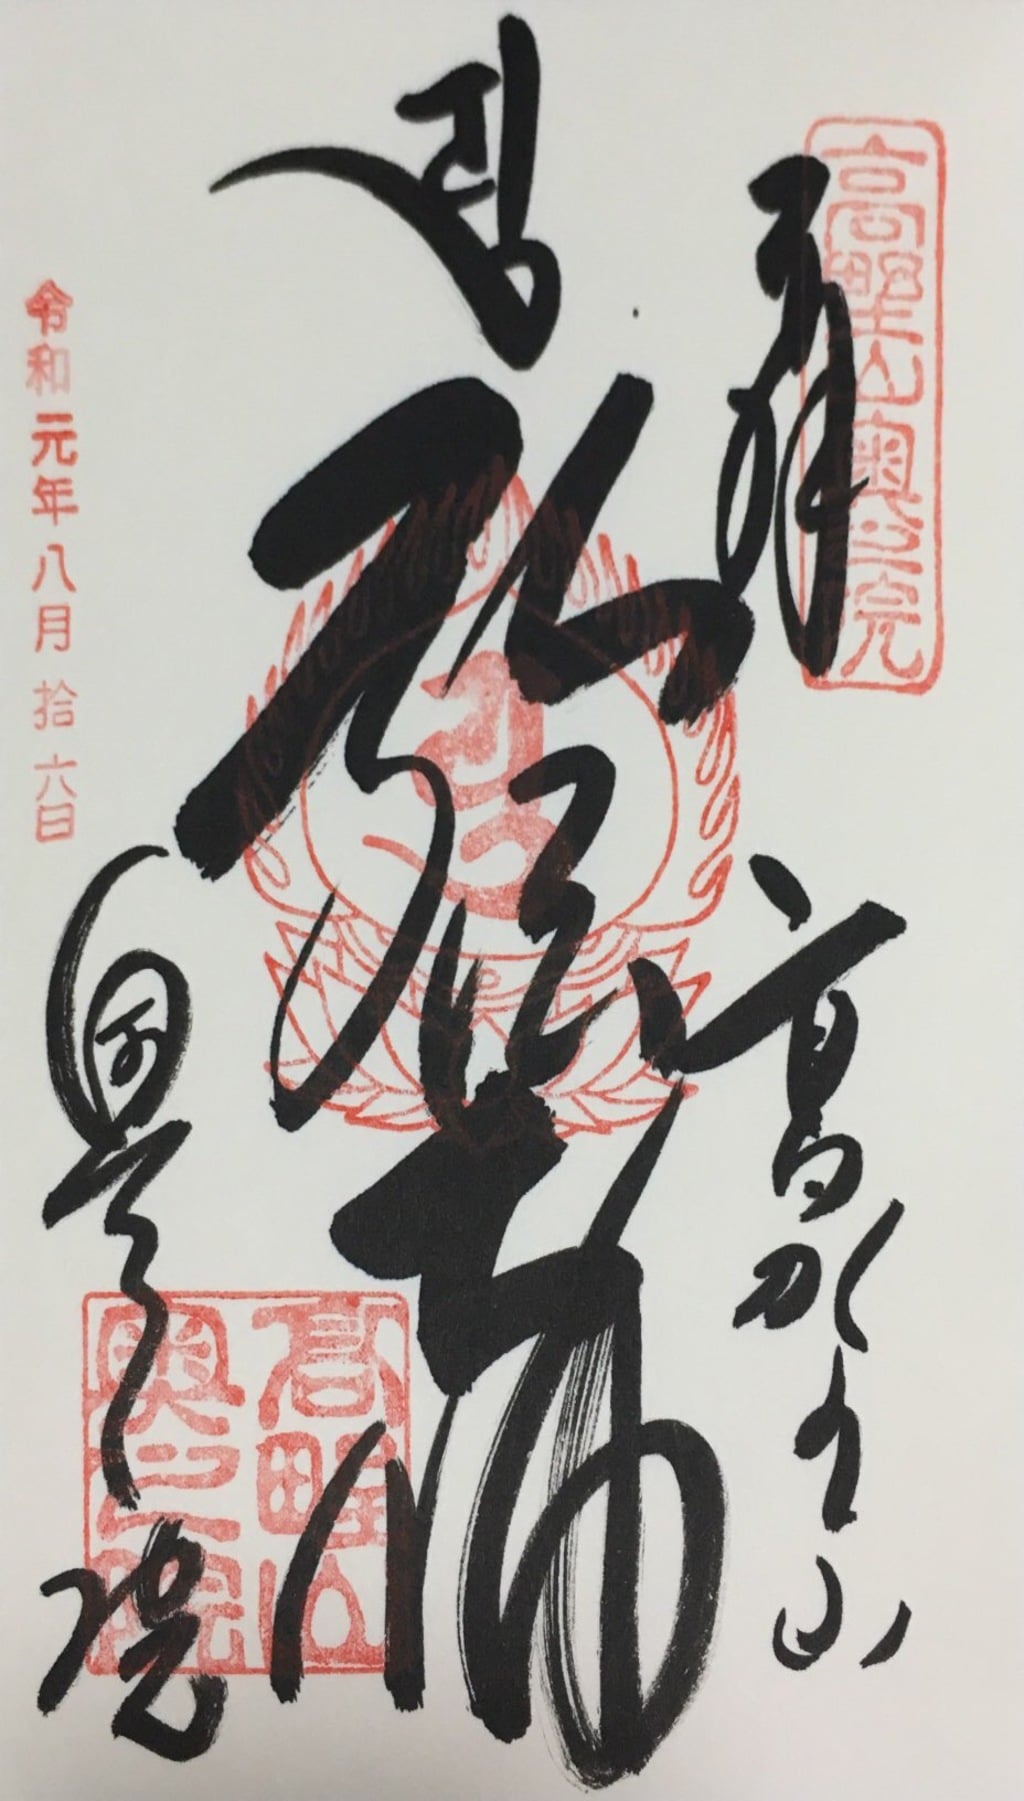 高野山奥之院
奉拝
高野山
弘法大師
奥之院
高野山
奥之院
令和元年八月拾六日